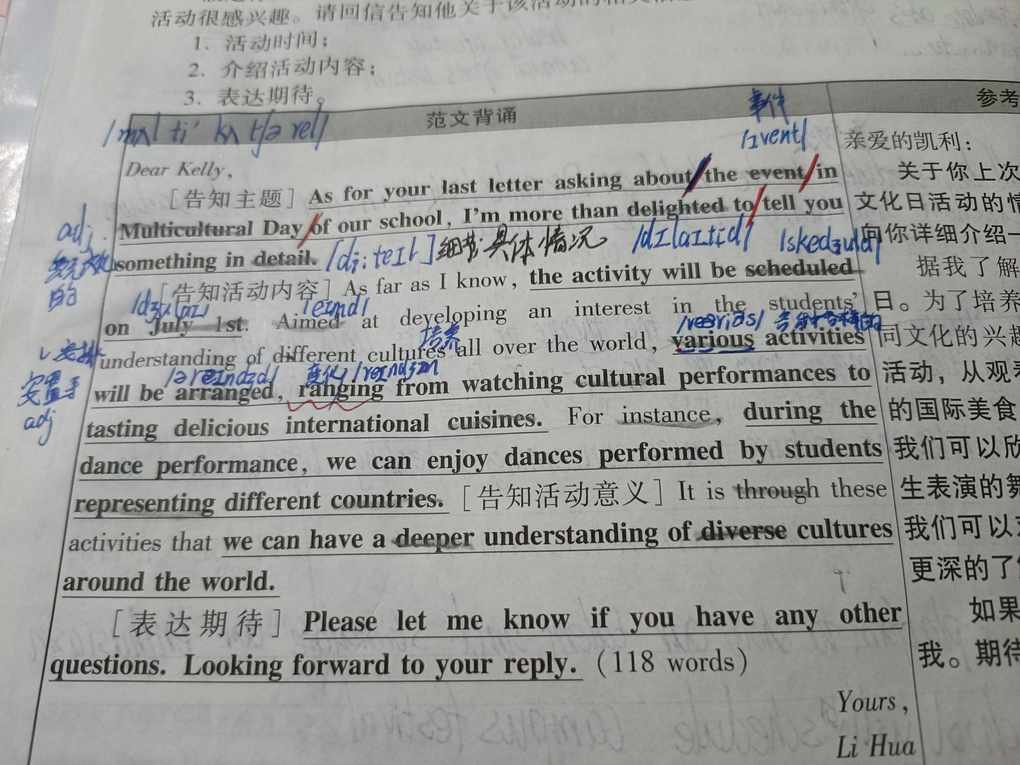 活动很感兴趣。请回信告知他关于该活动的
1. 活动时间；
2. 介绍活动内容；
3. 表达期待。
范文背诵
参考
事件
/ɪvent/
Dear Kelly,
[告知主题] As for your last letter asking about the event in
Multicultural Day of our school, I'm more than delighted to tell you
something in detail.
细节 具体情况
adj.
[告知活动内容] As far as I know, the activity will be scheduled
on July 1st. Aimed at developing an interest in the students'
培养
understanding of different cultures all over the world, various activities
安置
adj
变化
will be arranged, ranging from watching cultural performances to
tasting delicious international cuisines. For instance, during the
dance performance, we can enjoy dances performed by students
representing different countries. [告知活动意义] It is through these
activities that we can have a deeper understanding of diverse cultures
around the world.
[表达期待] Please let me know if you have any other
questions. Looking forward to your reply. (118 words)
Yours,
Li Hua
亲爱的凯利：
关于你上次
文化日活动的情
向你详细介绍一
据我了解
日。为了培养
同文化的兴趣
活动，从观看
的国际美食
我们可以欣
生表演的舞
我们可以
更深的了
如果
我。期待